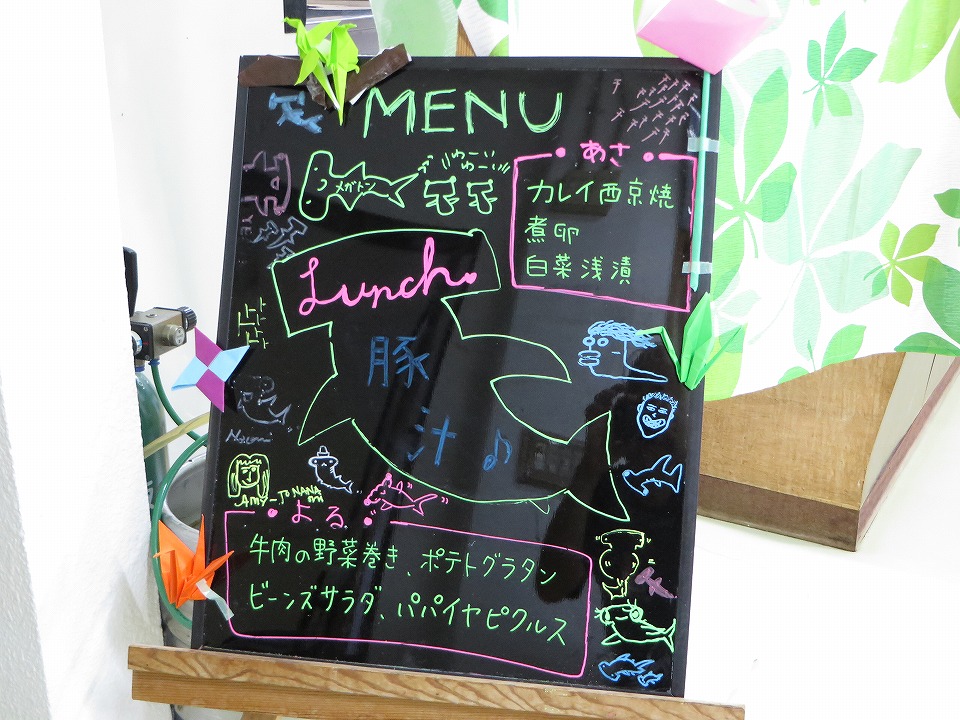 MENU
メガトン
わーい
わーい!!
あさ
カレイ西京焼
煮卵
白菜浅漬
Lunch.
豚
汁♪
Naomi
よる
牛肉の野菜巻き、ポテトグラタン
ビーンズサラダ、パパイヤピクルス